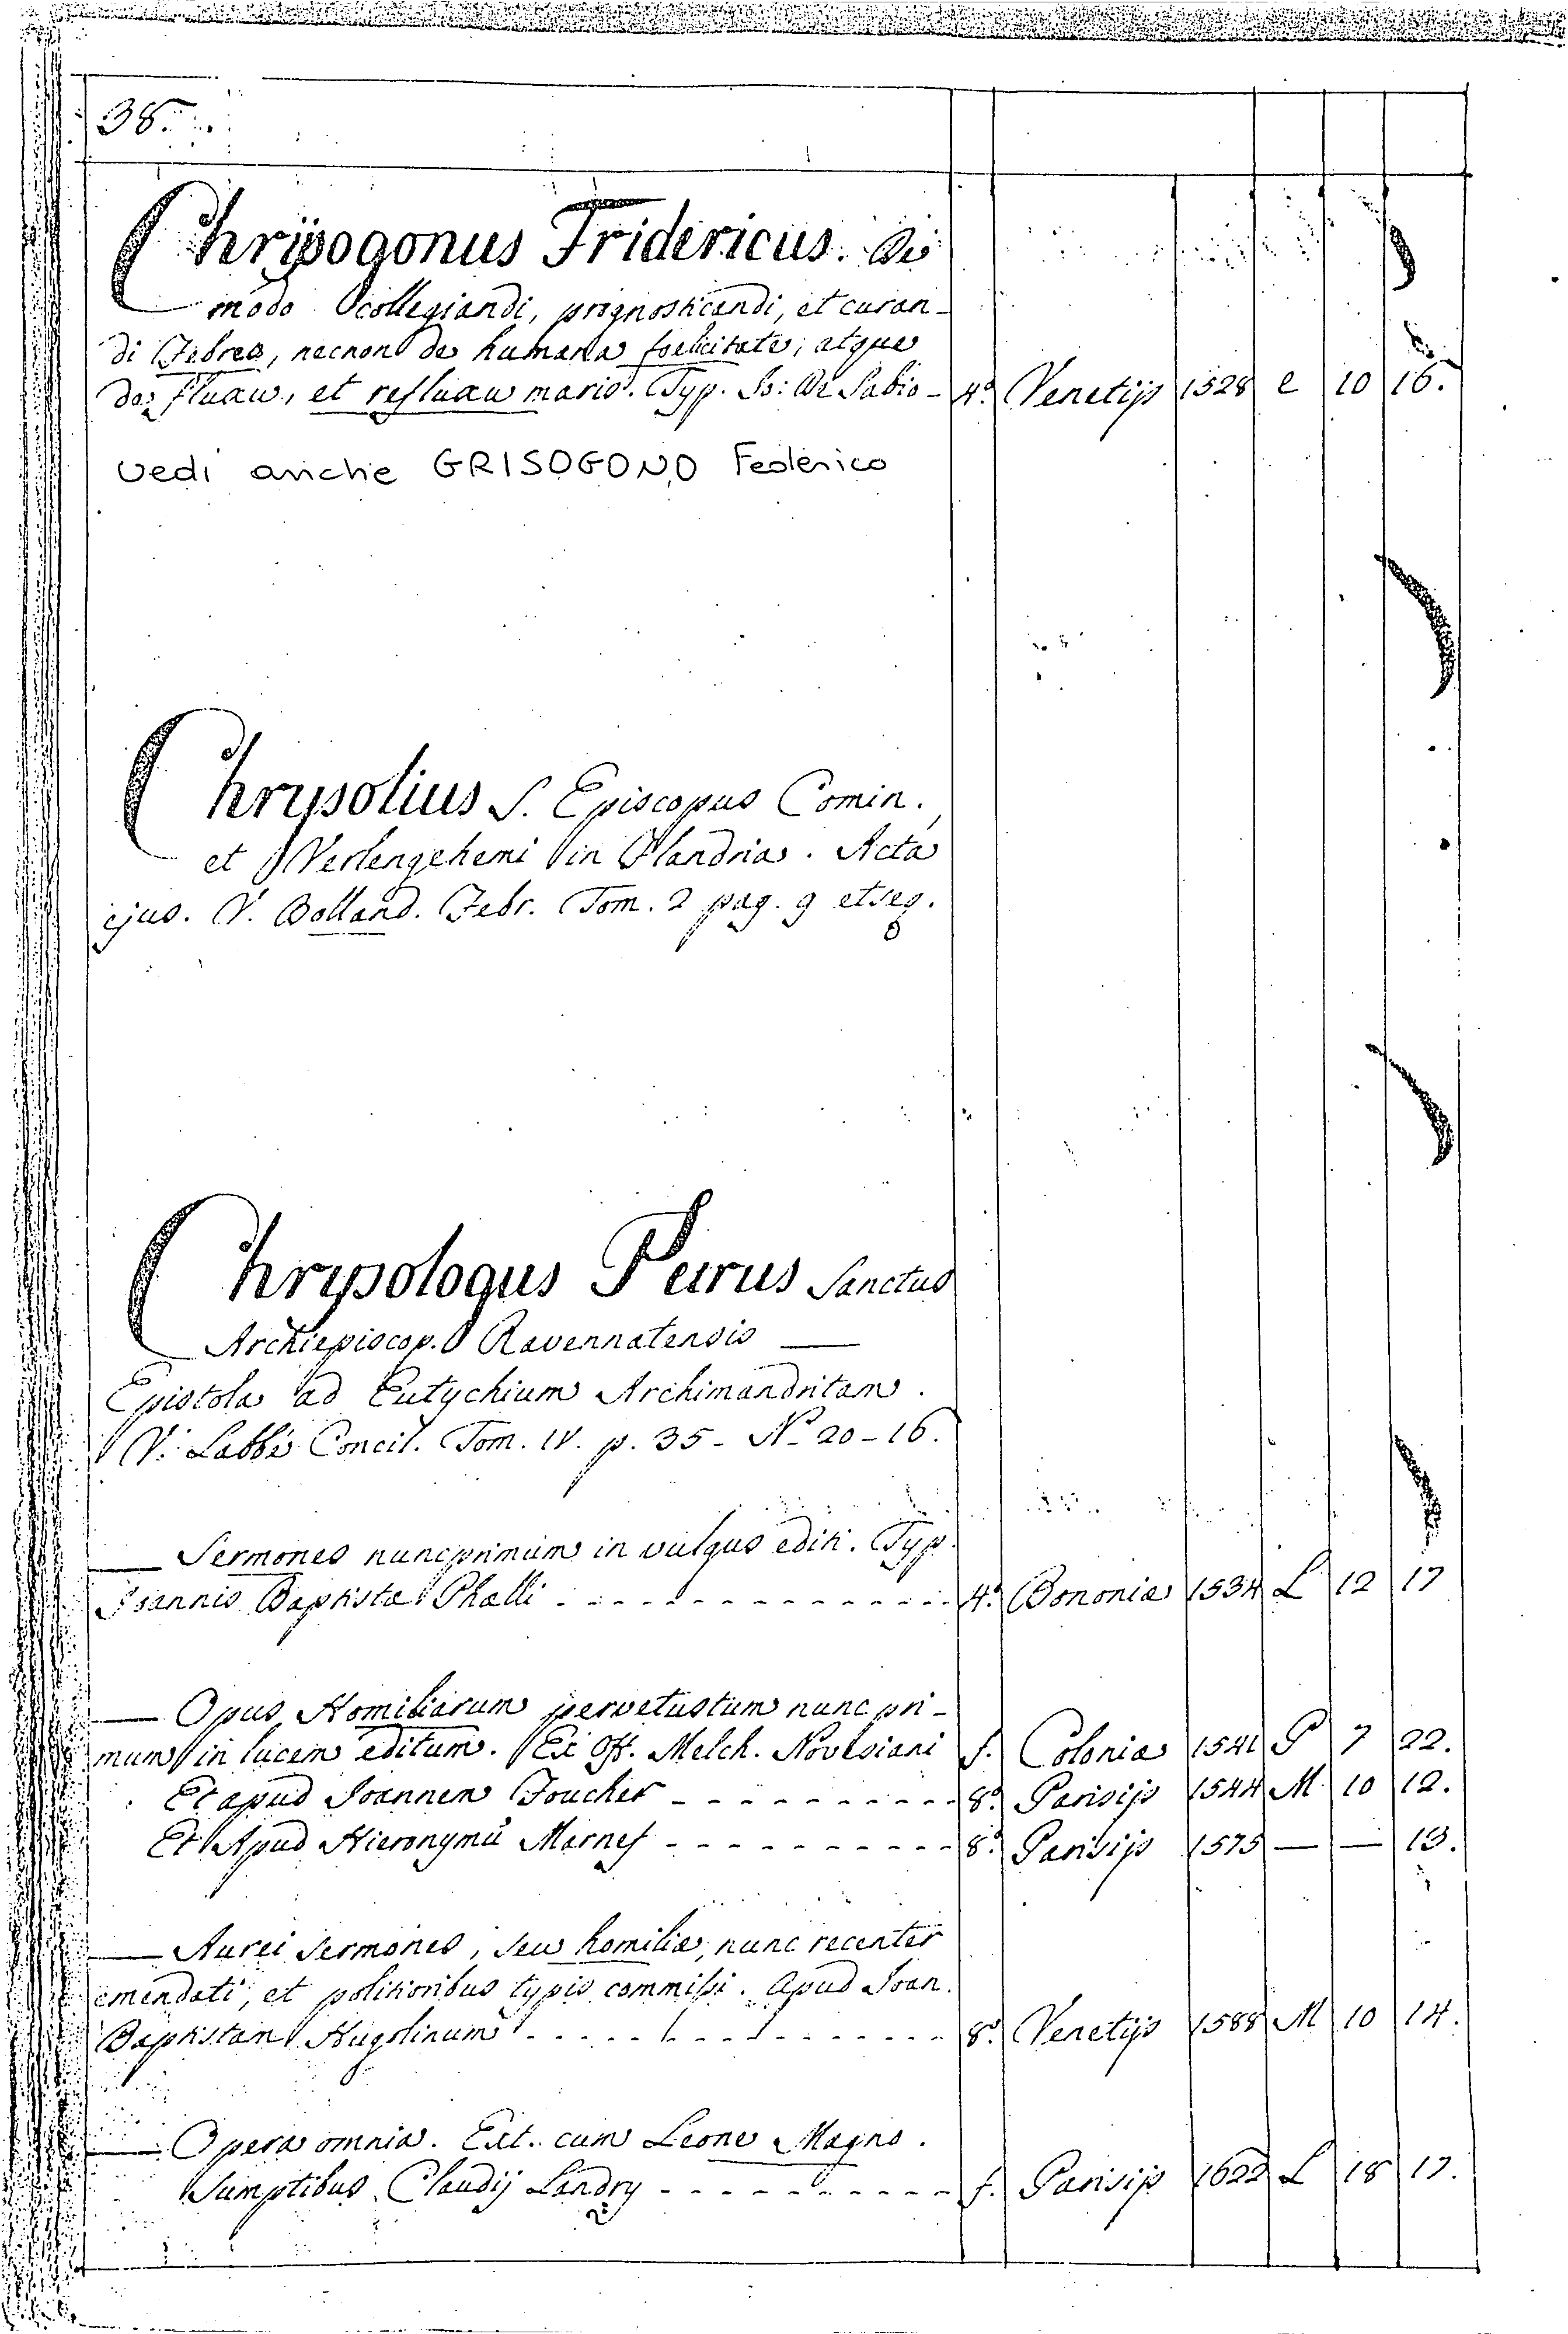 38.
Chrysogonus Fridericus. De
modo collegiandi, prognosticandi, et curan-
di Febres, necnon de humana foelicitate, atque
de fluxu, et refluxu maris. Typ. Io: de Sabio - 4.° Venetijs 1528 e 10 16.
vedi anche GRISOGONO Federico
Chrysolius S. Episcopus Comin.
et Verlengehemi in Flandria. Acta
ejus. V. Bolland. Febr. Tom. 2 pag. 9 et seq.
Chrysologus Petrus Sanctus
Archiepiscop. Ravennatensis —
Epistola ad Eutychium Archimandritam.
V. Labbè Concil. Tom. IV. p. 35 - N.° 20-16.
— Sermones nunc primum in vulgus editi. Typ.
Joannis Baptistæ Phælli - - - - - - - - - - - - - 4.° Bononiæ 1534 L 12 17
— Opus Homiliarum pervetustum nunc pri-
mum in lucem editum. Ex Off. Melch. Novesiani f. Coloniæ 1541 P 7 22.
Et apud Joannem Foucher - - - - - - - - - - 8.° Parisijs 1544 M 10 12.
Et Apud Hieronymū Marnef - - - - - - - - - - 8.° Parisijs 1575 — — 13.
— Aurei sermones, seu homiliæ, nunc recenter
emendati, et politioribus typis commissi. Apud Joan.
Baptistam Hugolinum - - - - - - - - - - - - 8.° Venetijs 1588 M 10 14.
— Opera omnia. Ext. cum Leone Magno.
Sumptibus Claudij Landry - - - - - - - - - - f. Parisijs 1622 L 18 17.